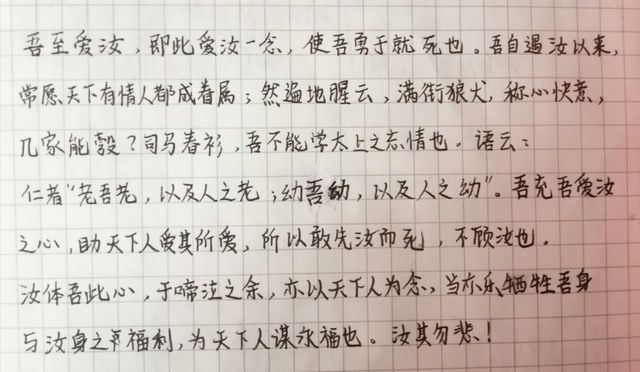 吾至爱汝，即此爱汝一念，使吾勇于就死也。吾自遇汝以来，
常愿天下有情人都成眷属；然遍地腥云，满街狼犬，称心快意，
几家能彀？司马春衫，吾不能学太上之忘情也。语云：
仁者“老吾老，以及人之老；幼吾幼，以及人之幼”。吾充吾爱汝
之心，助天下人爱其所爱，所以敢先汝而死，不顾汝也。
汝体吾此心，于啼泣之余，亦以天下人为念，当亦乐牺牲吾身
与汝身之福利，为天下人谋永福也。汝其勿悲！